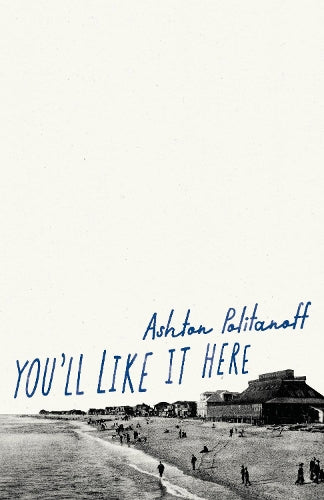 Ashton Politanoff
YOU'LL LIKE IT HERE